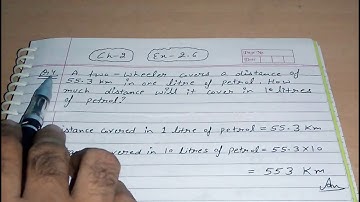 Ch-2 Ex-2.6
Q.4. A two-wheeler covers a distance of
55.3 km in one litre of petrol. How
much distance will it cover in 10 litres
of petrol?
istance covered in 1 litre of petrol = 55.3 Km
covered in 10 litres of petrol = 55.3 × 10
= 553 Km
Ans